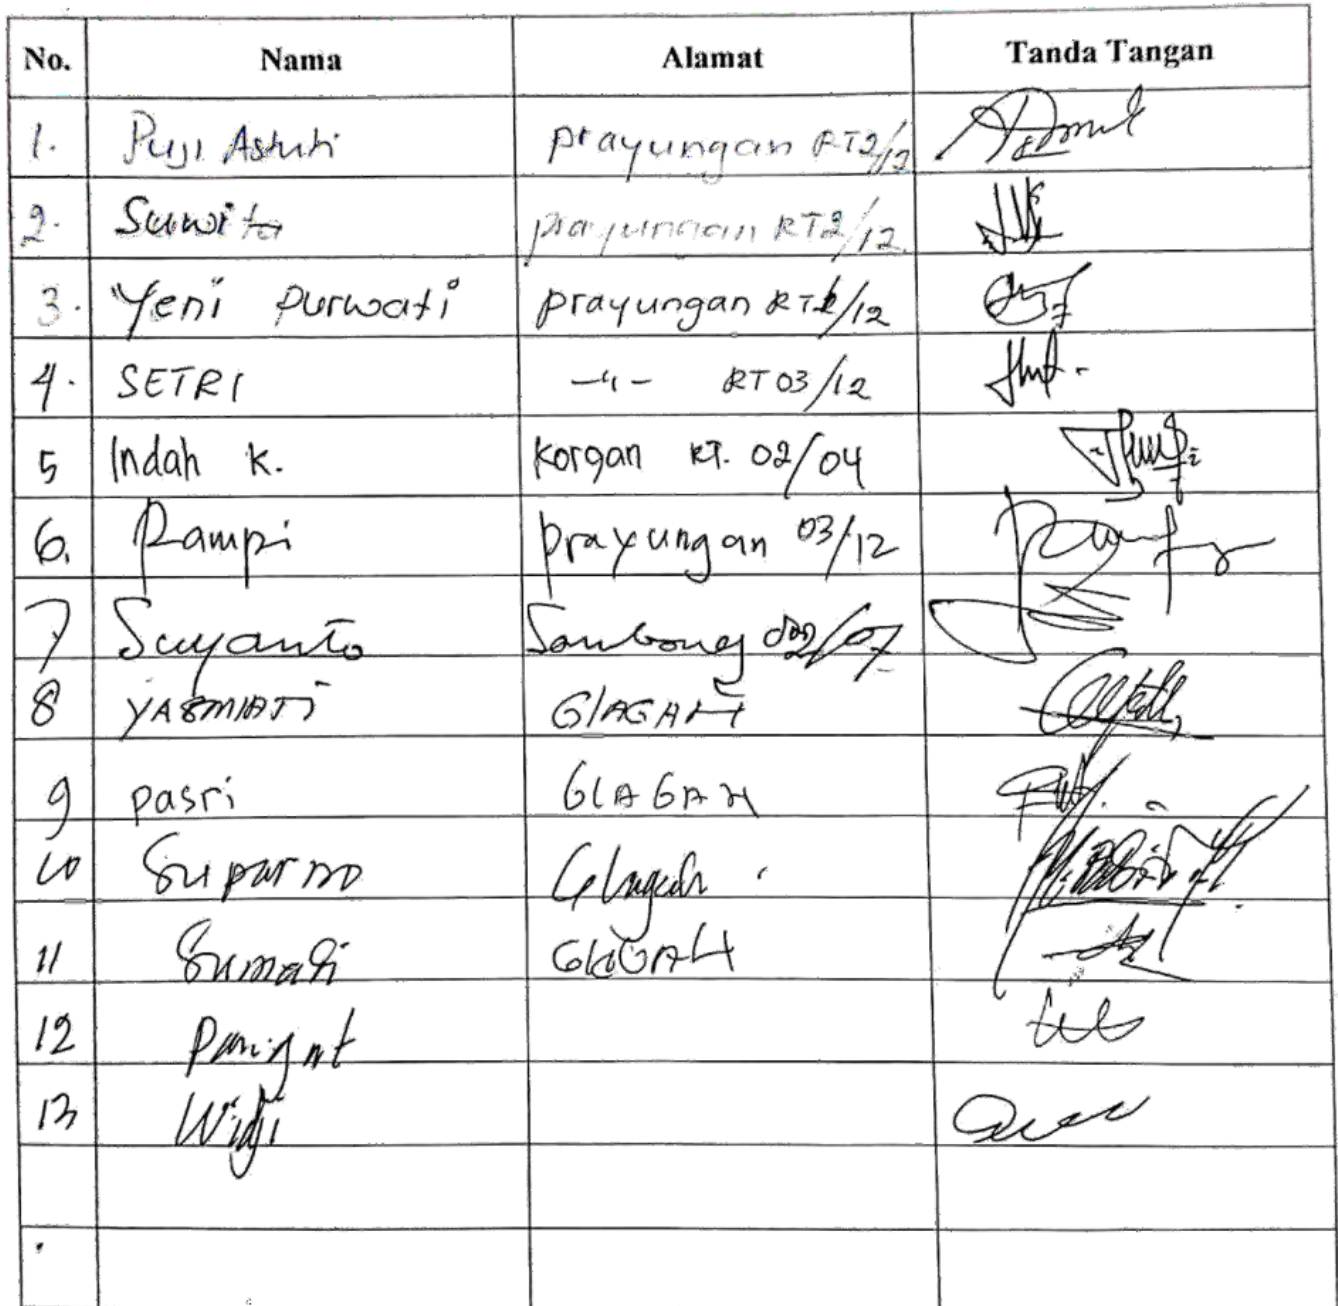 No. Nama Alamat Tanda Tangan
1. Puji Astuti prayungan RT2/12
2. Suwito prayungan RT2/12
3. Yeni Purwati prayungan RT2/12
4. SETRI —"— RT 03/12
5 Indah K. Korgan RT. 02/04
6. Rampi prayungan 03/12
7 Suyanto Sambong 02/07
8 YASMIATI GLAGAH
9 pasri GLAGAH
10 Suparno Glagah
11 Sumadi GLAGAH
12
13 Widji